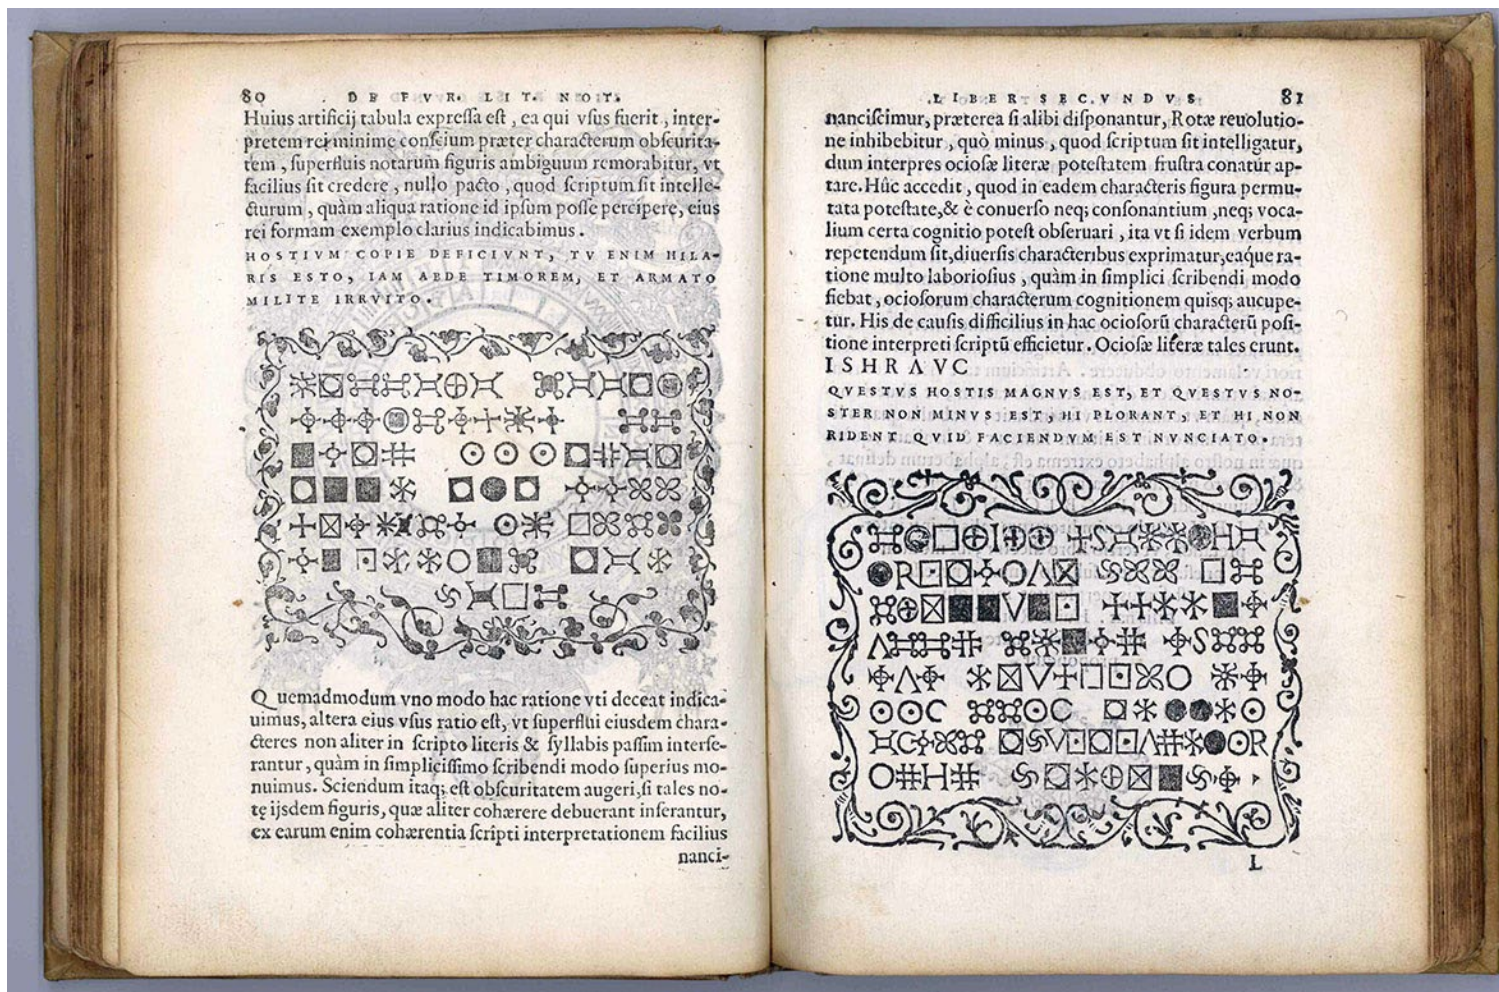 80 DE FVR. LIT. NOT.
Huius artificij tabula expreſſa eſt, ea qui vſus fuerit, inter-
pretem rei minime conſcium præter characterum obſcurita-
tem, ſuperfluis notarum figuris ambiguum remorabitur, vt
facilius ſit credere, nullo pacto, quod ſcriptum ſit intelle-
cturum, quàm aliqua ratione id ipſum poſſe percipere, eius
rei formam exemplo clarius indicabimus.
HOSTIVM COPIE DEFICIVNT, TV ENIM HILA-
RIS ESTO, IAM ABDE TIMOREM, ET ARMATO
MILITE IRRVITO.
Quemadmodum vno modo hac ratione vti deceat indica-
uimus, altera eius vſus ratio eſt, vt ſuperflui eiuſdem chara-
cteres non aliter in ſcripto literis & ſyllabis paſſim interſe-
rantur, quàm in ſimpliciſſimo ſcribendi modo ſuperius mo-
nuimus. Sciendum itaq; eſt obſcuritatem augeri, ſi tales no-
tę ijsdem figuris, quæ aliter cohærere debuerant inſerantur,
ex earum enim cohærentia ſcripti interpretationem facilius
nanci-
LIBER SECVNDVS. 81
nanciſcimur, præterea ſi alibi diſponantur, Rotæ reuolutio-
ne inhibebitur, quò minus, quod ſcriptum ſit intelligatur,
dum interpres ocioſæ literæ poteſtatem fruſtra conatur ap-
tare. Hûc accedit, quod in eadem characteris figura permu-
tata poteſtate, & è conuerſo neq; conſonantium, neq; voca-
lium certa cognitio poteſt obſeruari, ita vt ſi idem verbum
repetendum ſit, diuerſis characteribus exprimatur, eaq́ue ra-
tione multo laborioſius, quàm in ſimplici ſcribendi modo
fiebat, ocioſorum characterum cognitionem quisq; aucupe-
tur. His de cauſis difficilius in hac ocioſorũ characterũ poſi-
tione interpreti ſcriptũ efficietur. Ocioſæ literæ tales erunt.
I S H R Λ V C
QVESTVS HOSTIS MAGNVS EST, ET QVESTVS NO-
STER NON MINVS EST, HI PLORANT, ET HI NON
RIDENT QVID FACIENDVM EST NVNCIATO.
L